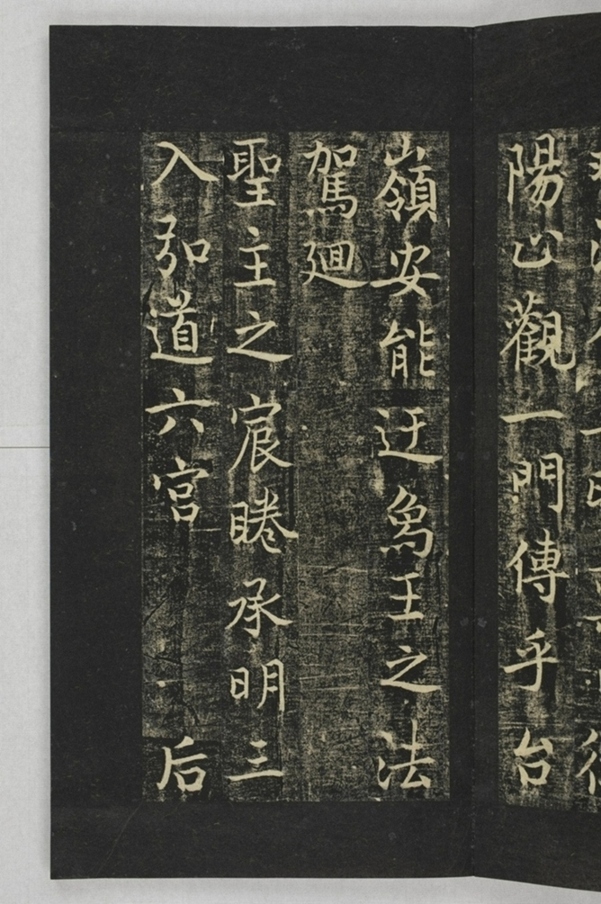 陽心觀一門傳乎台
嶺安能迂象王之法
駕廻
聖主之宸睠承明三
入弘道六宮 后